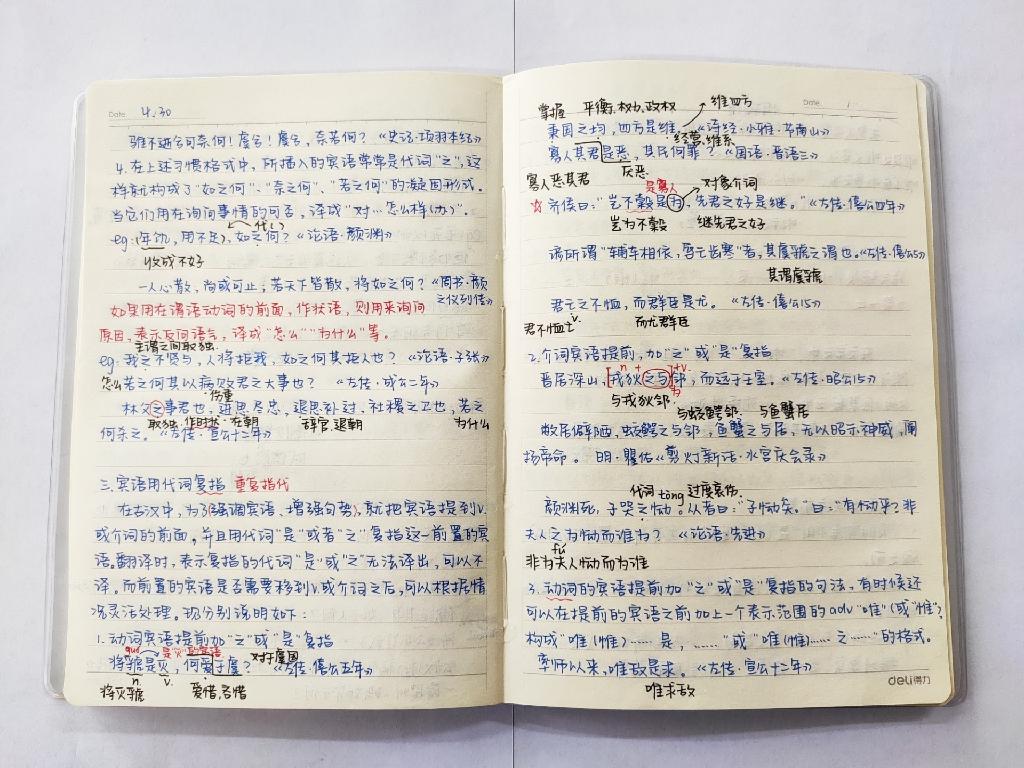 Date 4.30
骓不逝兮可奈何！虞兮！虞兮，奈若何？《史记·项羽本纪》
4.在上述习惯格式中，所插入的宾语常常是代词"之"，这
样就构成了"如之何"、"奈之何"、"若之何"的凝固形式。
当它们用在询问事情的可否，译成"对…怎么样(办)"。
代()
eg:(年饥，用不足)，如之何？《论语·颜渊》
收成不好
一人心散，尚或可止，若天下皆散，将如之何？《周书·颜
之仪列传》
如果用在谓语动词的前面，作状语，则用来询问
原因，表示反问语气，译成"怎么""为什么"等。
主谓之间取独
eg:我之不贤与，人将拒我，如之何其拒人也？《论语·子张》
怎么
若之何其以病败君之大事也？《左传·成公二年》
伤重
林父之事君也，进思尽忠，退思补过，社稷之卫也，若之
取独 作时状 在朝 辞官,退朝 为什么
何杀之。《左传·宣公十二年》
三.宾语用代词复指 重复指代
在古汉中，为了(强调宾语、增强句势)，就把宾语提到v.
或介词的前面，并且用代词"是"或者"之"复指这一前置的宾
语。翻译时，表示复指的代词"是"或"之"无法译出，可以不
译。而前置的宾语是否需要移到v.或介词之后，可以根据情
况灵活处理。现分别说明如下：
1.动词宾语提前加"之"或"是"复指
guó 是灭的宾语 对于虞国
将虢是灭，何爱于虞？《左传·僖公五年》
n. v.
将灭虢 爱惜,吝惜
Date
掌握 平衡,权力,政权 维四方
秉国之均，四方是维。《诗经·小雅·节南山》
经营,维系
寡人其君是恶，其民何罪？《国语·晋语三》
寡人恶其君 厌恶
是寡人 对象介词
☆齐侯曰："岂不穀是为，先君之好是继。"《左传·僖公四年》
岂为不穀 继先君之好
谚所谓"辅车相依，唇亡齿寒"者，其虞虢之谓也。《左传·僖公5》
其谓虞虢
君亡之不恤，而群臣是忧。《左传·僖公15》
v.
君不恤亡 而忧群臣
2.介词宾语提前，加"之"或"是"复指
n + +v.
晋居深山，戎狄之与邻，而远于王室。《左传·昭公15》
为
与戎狄邻
与蛟鳄邻 与鱼蟹居
敝居僻陋，蛟鳄之与邻，鱼蟹之与居，无以昭示神威，阐
扬帝命。明·瞿佑《剪灯新话·水宫庆会录》
代词 tòng 过度哀伤
颜渊死，子哭之恸。从者曰："子恸矣。"曰："有恸乎？非
夫人之为恸而谁为？《论语·先进》
fú
非为夫人恸而为谁
3.动词的宾语提前加"之"或"是"复指的句法，有时候还
可以在提前的宾语之前加上一个表示范围的adv"唯"(或"惟")，
构成"唯(惟)……是，……"或"唯(惟)……之……"的格式。
率师以来，唯敌是求。《左传·宣公十二年》
唯求敌
deli得力